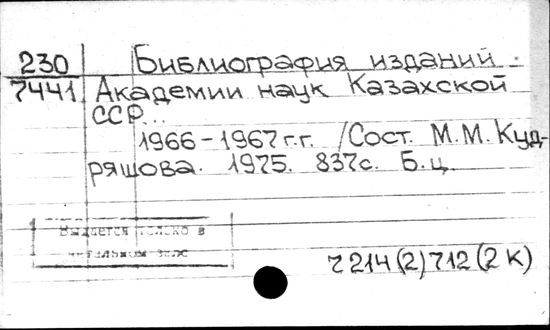 230 Библиография изданий
7441 Академии наук Казахской
ССР...
1966-1967 г.г. /Сост. М.М. Куд-
ряшова. 1975. 837с. Б.ц.
Выдается только в
читальном зале
Ч 214(2)712(2К)